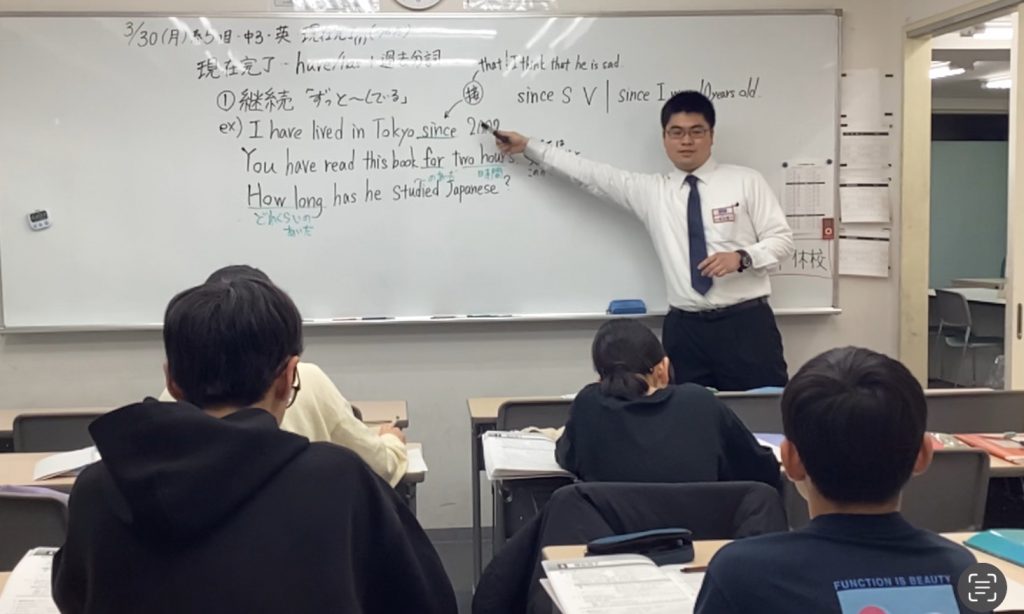 3/30(月) 中3・英
現在完了 - have/has + 過去分詞
that: I think that he is sad.
① 継続 「ずっと〜している」
接
since S V | since I was 10 years old.
ex) I have lived in Tokyo since
You have read this book for two hours
のあいだ 時間
How long has he studied Japanese?
どれくらいの
あいだ
休校
FUNCTION IS BEAUTY